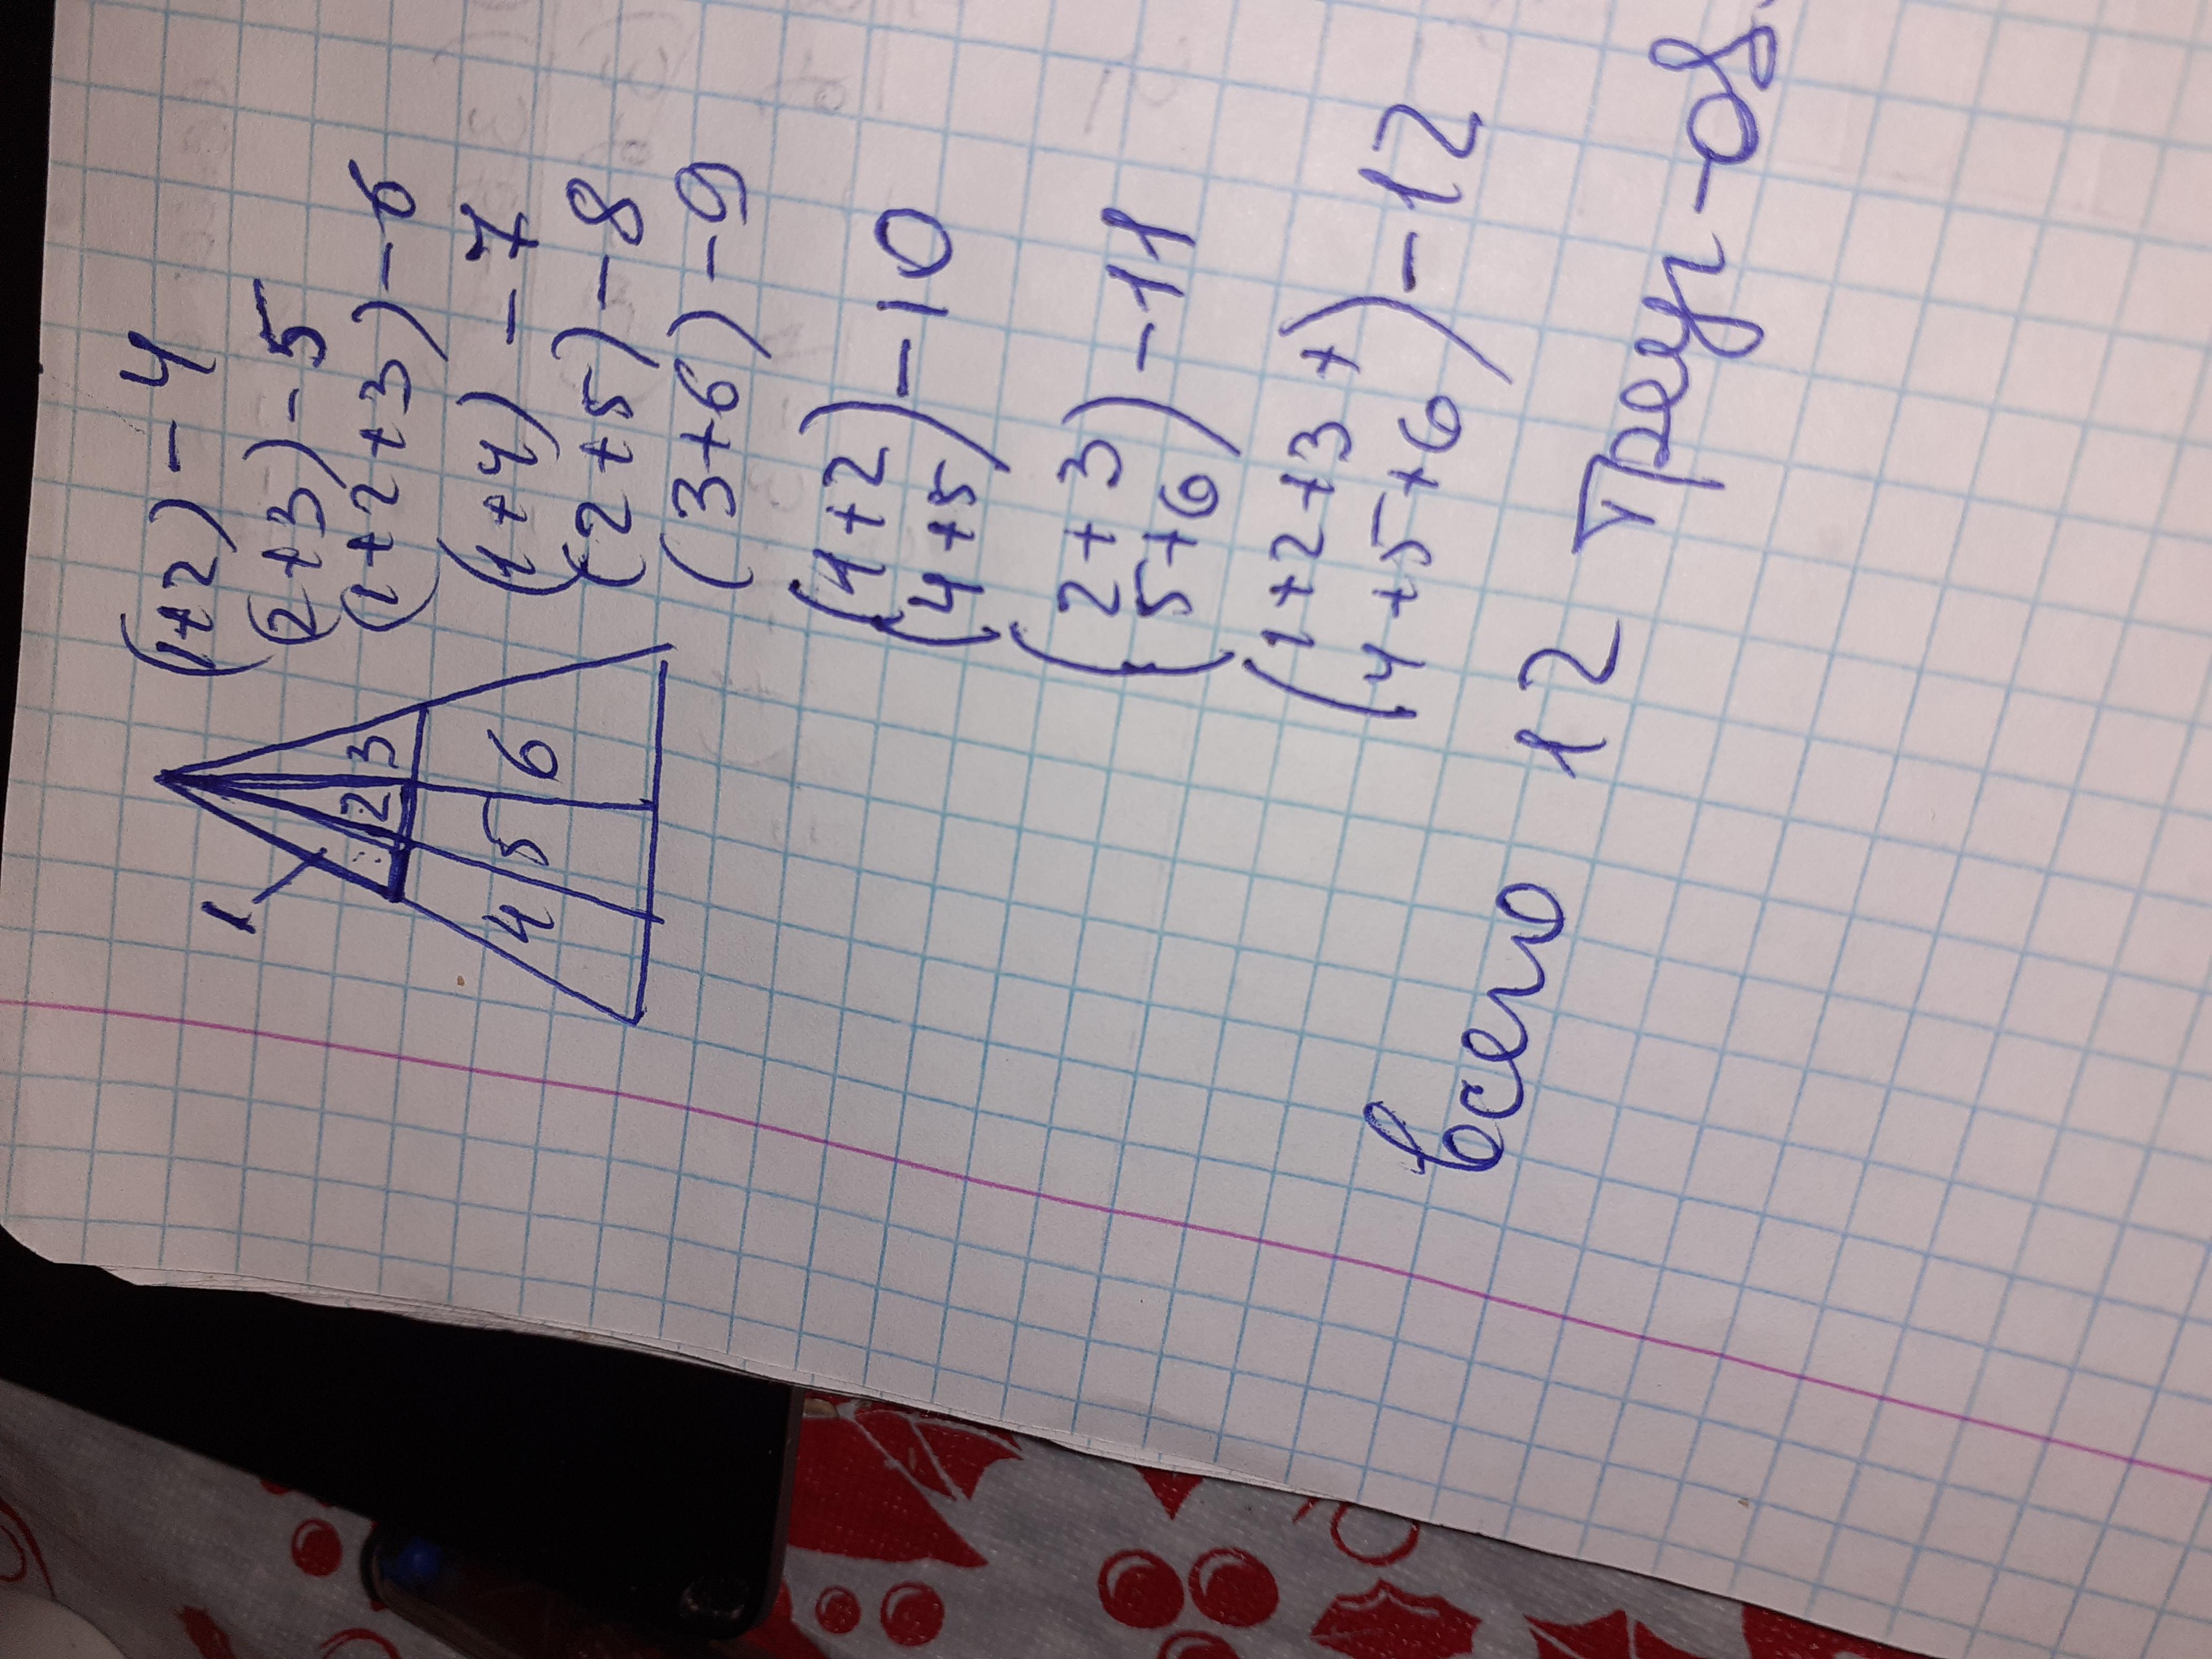 1
2
3
4
5
6
(1+2) – 4
(2+3) – 5
(1+2+3) – 6
(1+4) – 7
(2+5) – 8
(3+6) – 9
(1+2)
(4+5) – 10
(2+3)
(5+6) – 11
(1+2+3+
(4+5+6) – 12
всего 12 треуг-ов